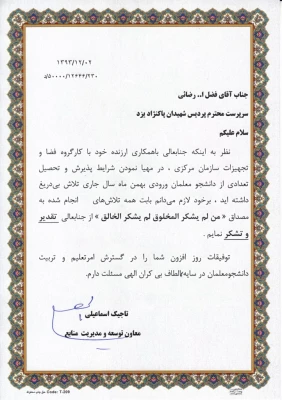 ۱۳۹۳/۱۲/۰۲
۵۰۰۰۰/۱۲۶۴۶/۲۳۰/د
جناب آقای فضل ا.. رضائی
سرپرست محترم پردیس شهیدان پاکنژاد یزد
سلام علیکم
نظر به اینکه جنابعالی باهمکاری ارزنده خود با کارگروه فضا و
تجهیزات سازمان مرکزی ، در مهیا نمودن شرایط پذیرش و تحصیل
تعدادی از دانشجو معلمان ورودی بهمن ماه سال جاری تلاش بی‌دریغ
داشته اید ، برخود لازم می‌دانم بابت همه تلاش‌های انجام شده به
مصداق «من لم یشکر المخلوق لم یشکر الخالق » از جنابعالی تقدیر
و تشکر نمایم .
توفیقات روز افزون شما را در گسترش امرتعلیم و تربیت
دانشجومعلمان در سایه الطاف بی کران الهی مسئلت دارم.
تاجیک اسماعیلی
معاون توسعه و مدیریت منابع
Code: T-206